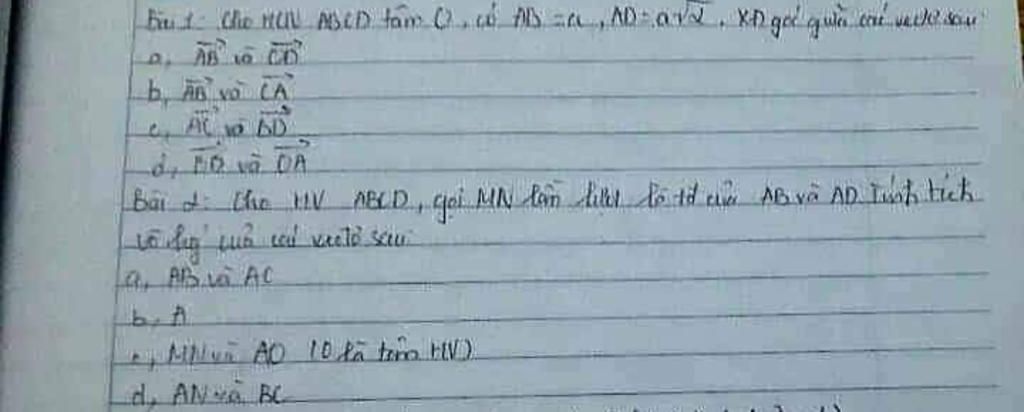 Bài 1: Cho HCN ABCD tâm O, có AB = a, AD = a√2. XĐ góc giữa các vectơ sau:
a, AB và CD
b, AB và CA
c, AC và BD
d, và OA
Bài 2: Cho HV ABCD, gọi MN lần lượt là tđ của AB và AD Tính tích
vô hg của các vectơ sau:
a, AB và AC
b, A
c, MN và AO (O là tâm HV)
d, AN và BC